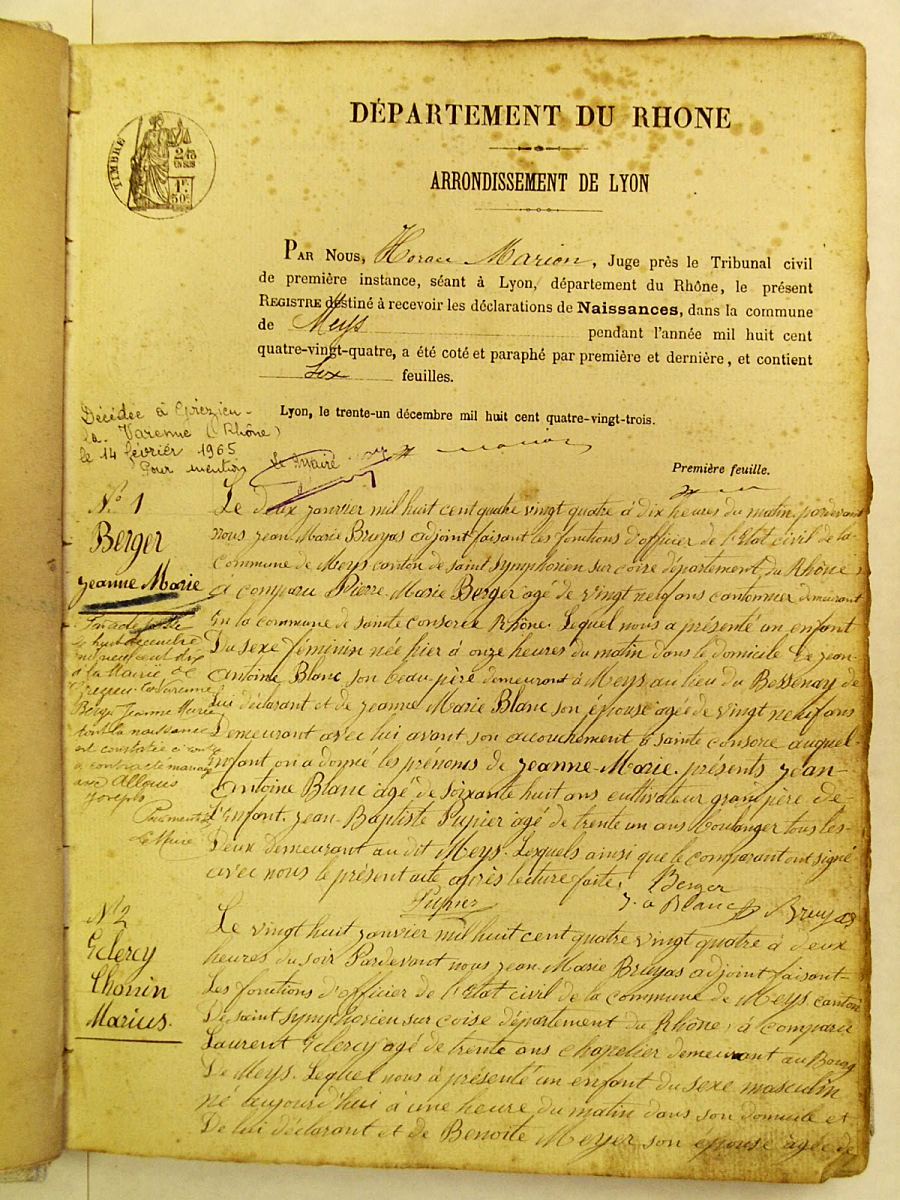 DÉPARTEMENT DU RHONE
ARRONDISSEMENT DE LYON
TIMBRE
PAR NOUS, Horace Marion, Juge près le Tribunal civil
de première instance, séant à Lyon, département du Rhône, le présent
REGISTRE destiné à recevoir les déclarations de Naissances, dans la commune
de Meys pendant l'année mil huit cent
quatre-vingt-quatre, a été coté et paraphé par première et dernière, et contient
Six feuilles.
Lyon, le trente-un décembre mil huit cent quatre-vingt-trois.
Première feuille.
Décédée à Grézieu-
la-Varenne (Rhône)
le 14 février 1965
Pour mention
Le Maire
N° 1
Berger
Jeanne Marie
le huit décembre
mil neuf cent dix
à la Mairie de
Grézieu la Varenne
Berger Jeanne Marie
dont la naissance
est constatée ci contre
a contracté mariage
avec Allouis
Joseph
Pour mention
Le Maire
Le deux janvier mil huit cent quatre vingt quatre à dix heures du matin pardevant
nous Jean Marie Bruyas adjoint faisant les fonctions d'officier de l'Etat civil de la
commune de Meys canton de saint symphorien sur coise département du Rhône,
à comparu Pierre Marie Berger agé de vingt neuf ans cantonnier demeurant
en la commune de sainte consorce Rhône. Lequel nous a présenté un enfant
Du sexe féminin née hier à onze heures du matin dans le domicile de jean-
Antoine Blanc, son beau père demeurant à Meys au lieu du Bessenay de
Lui déclarant et de jeanne Marie Blanc son épouse agée de vingt neuf ans
Demeurant avec lui avant son accouchement à sainte consorce auquel
enfant on a donné les prénoms de jeanne-Marie. présents jean-
Antoine Blanc agé de soixante huit ans cultivateur grand père de-
L'enfant. jean-Baptiste Pupier agé de trente un ans boulanger tous les-
Deux demeurant au dit Meys. Lesquels ainsi que le comparant ont signé
avec nous le présent acte après lecture faite. Berger
Pupier J. a Blanc Bruyas
N° 2
Eclercy
Chonin
Marius.
Le vingt huit janvier mil huit cent quatre vingt quatre à deux
heures du soir Pardevant nous jean-Marie Bruyas adjoint faisant
Les fonctions d'officier de l'Etat civil de la commune de Meys canton
De saint symphorien sur coise département du Rhône, à comparu
Laurent Eclercy agé de trente ans chapelier demeurant au Bourg
De Meys. Lequel nous à présenté un enfant du sexe masculin
né aujourd'hui à une heure du matin dans son domicile et
De lui déclarant et de Benoite Meyer son épouse agée de